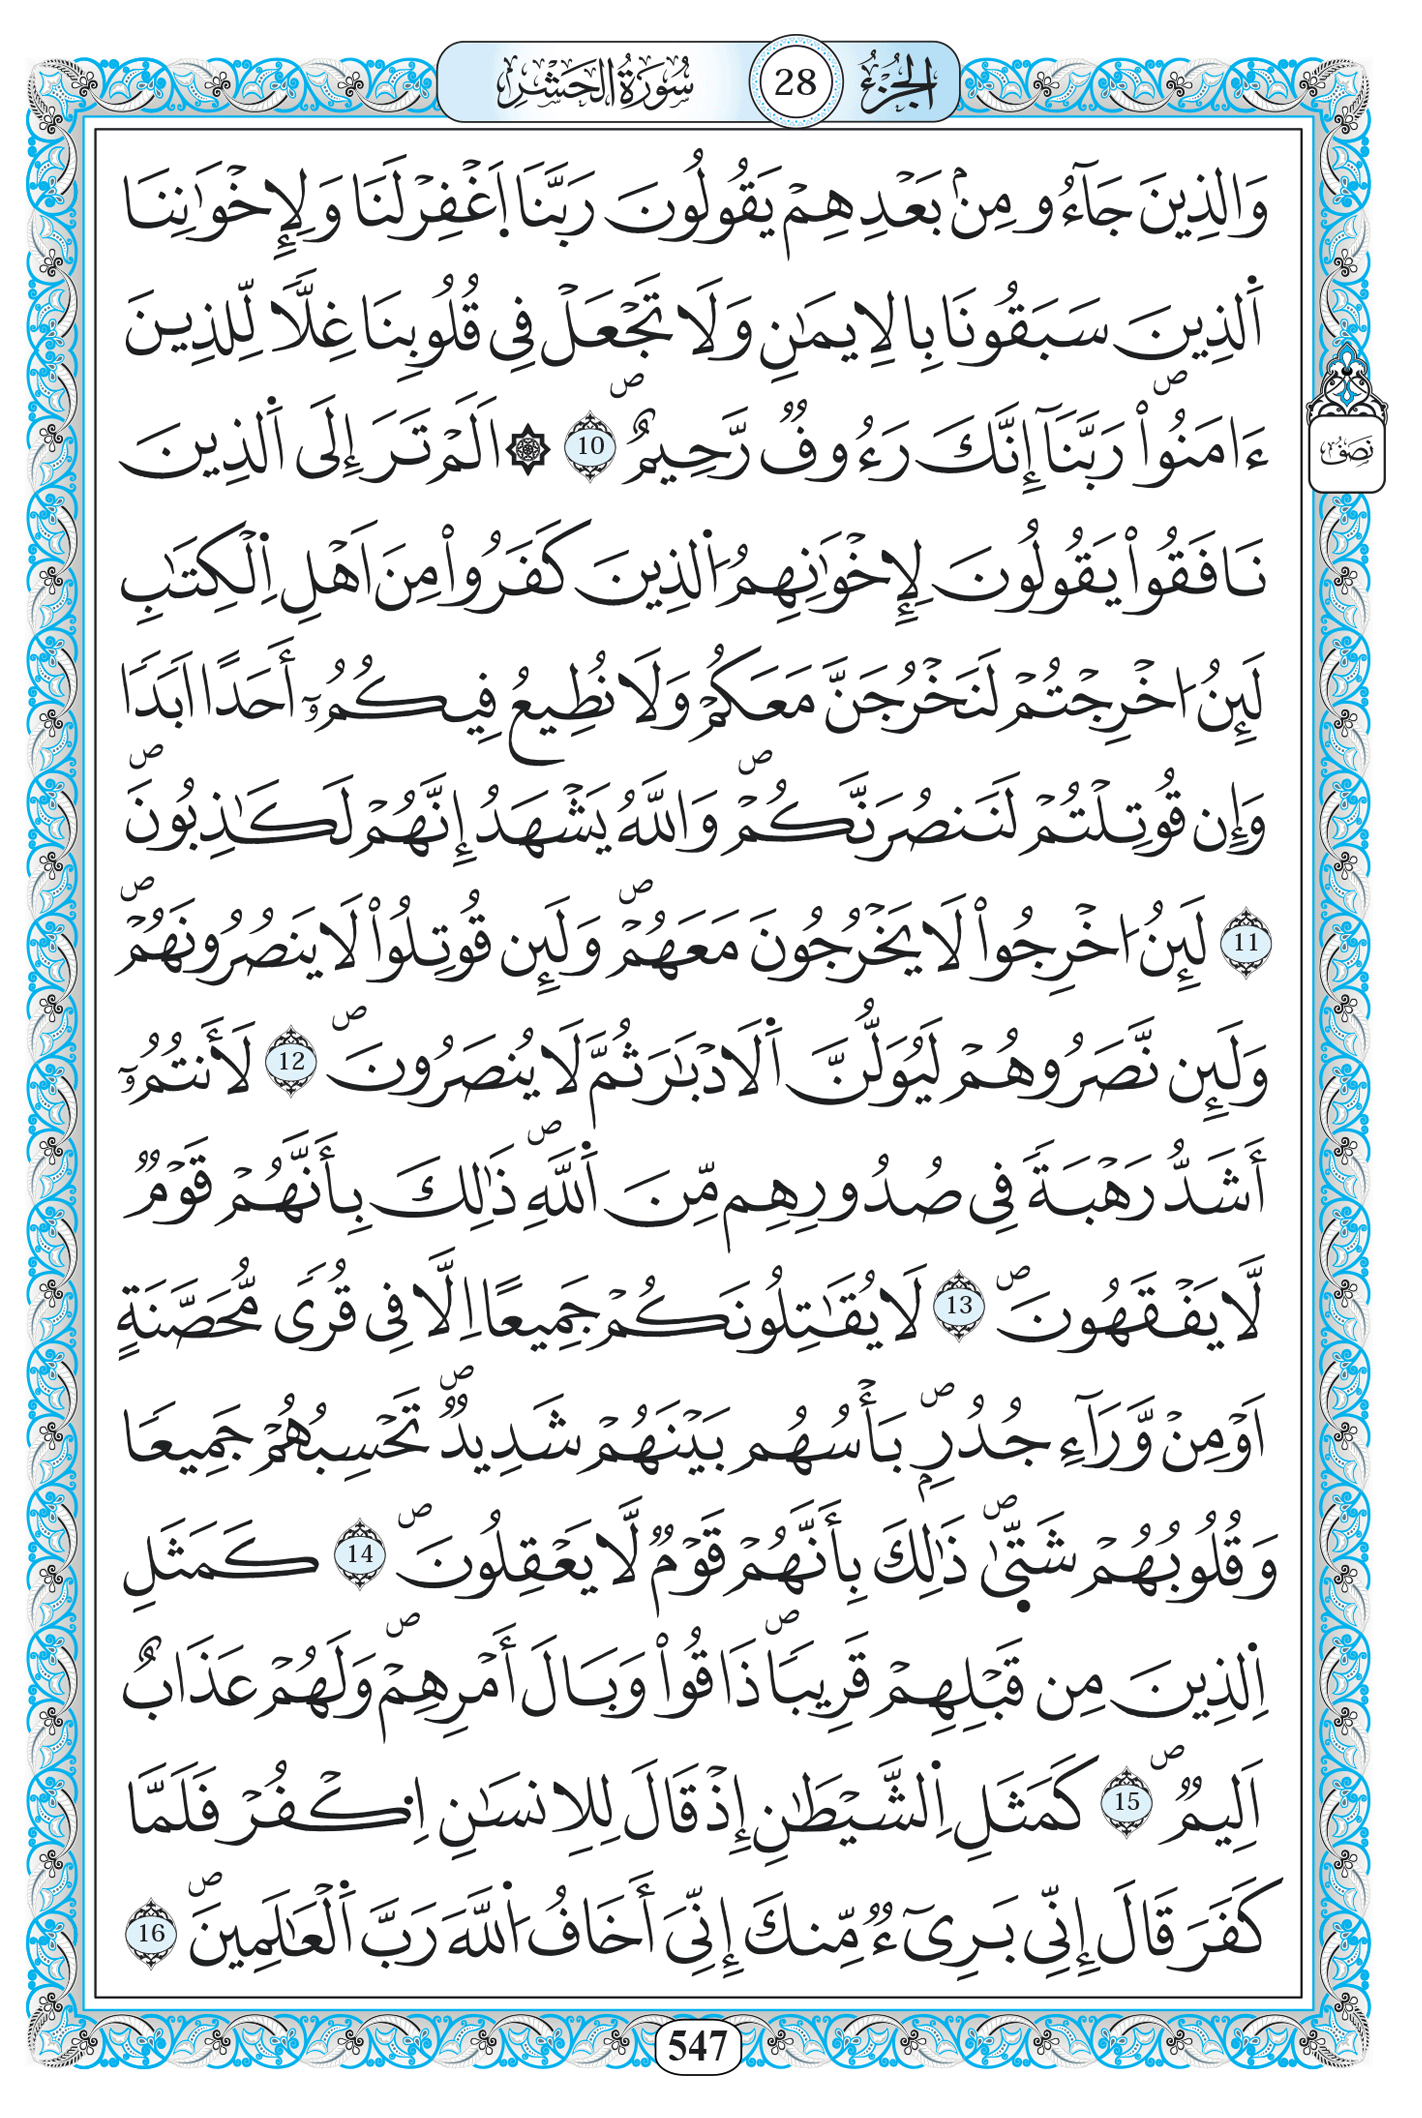 الجُزْءُ 28 سُورَةُ الحَشْرِ
وَالذِينَ جَآءُو مِنۢ بَعْدِهِمْ يَقُولُونَ رَبَّنَا اَ۪غْفِرْ لَنَا وَلِإِخْوَٰنِنَا
اَ۬لذِينَ سَبَقُونَا بِالِايمَٰنِ وَلَا تَجْعَلْ فِى قُلُوبِنَا غِلّاٗ لِّلذِينَ
ءَامَنُواْۖ رَبَّنَآ إِنَّكَ رَءُوفٞ رَّحِيمٌۖ 10 ۞ اَلَمْ تَرَ إِلَى اَ۬لذِينَ
نِصْفُ
نَافَقُواْ يَقُولُونَ لِإِخْوَٰنِهِمُ اُ۬لذِينَ كَفَرُواْ مِنَ اَهْلِ اِ۬لْكِتَٰبِ
لَئِنُ اخْرِجْتُمْ لَنَخْرُجَنَّ مَعَكُمْ وَلَا نُطِيعُ فِيكُمُۥٓ أَحَدًا اَبَداٗۖ
وَإِن قُوتِلْتُمْ لَنَنصُرَنَّكُمْۖ وَاللَّهُ يَشْهَدُ إِنَّهُمْ لَكَٰذِبُونَۖ
11 لَئِنُ اخْرِجُواْ لَا يَخْرُجُونَ مَعَهُمْۖ وَلَئِن قُوتِلُواْ لَا يَنصُرُونَهُمْۖ
وَلَئِن نَّصَرُوهُمْ لَيُوَلُّنَّ اَ۬لَادْبَٰرَ ثُمَّ لَا يُنصَرُونَۖ 12 لَأَنتُمُۥٓ
أَشَدُّ رَهْبَةٗ فِى صُدُورِهِم مِّنَ اَ۬للَّهِۖ ذَٰلِكَ بِأَنَّهُمْ قَوْمٞ
لَّا يَفْقَهُونَۖ 13 لَا يُقَٰتِلُونَكُمْ جَمِيعًا اِلَّا فِى قُرىٗ مُّحَصَّنَةٍ
اَوْ مِنْ وَّرَآءِ جُدُرِۢۖ بَأْسُهُم بَيْنَهُمْ شَدِيدٞۖ تَحْسِبُهُمْ جَمِيعاٗ
وَقُلُوبُهُمْ شَتّ۪ىٰۖ ذَٰلِكَ بِأَنَّهُمْ قَوْمٞ لَّا يَعْقِلُونَۖ 14 كَمَثَلِ
اِ۬لذِينَ مِن قَبْلِهِمْ قَرِيباٗۖ ذَاقُواْ وَبَالَ أَمْرِهِمْۖ وَلَهُمْ عَذَابٌ
اَلِيمٞۖ 15 كَمَثَلِ اِ۬لشَّيْطَٰنِ إِذْ قَالَ لِلِانسَٰنِ اِ۟كْفُرْ فَلَمَّا
كَفَرَ قَالَ إِنِّى بَرِىٓءٞ مِّنكَ إِنِّىَ أَخَافُ اُ۬للَّهَ رَبَّ اَ۬لْعَٰلَمِينَۖ 16
547